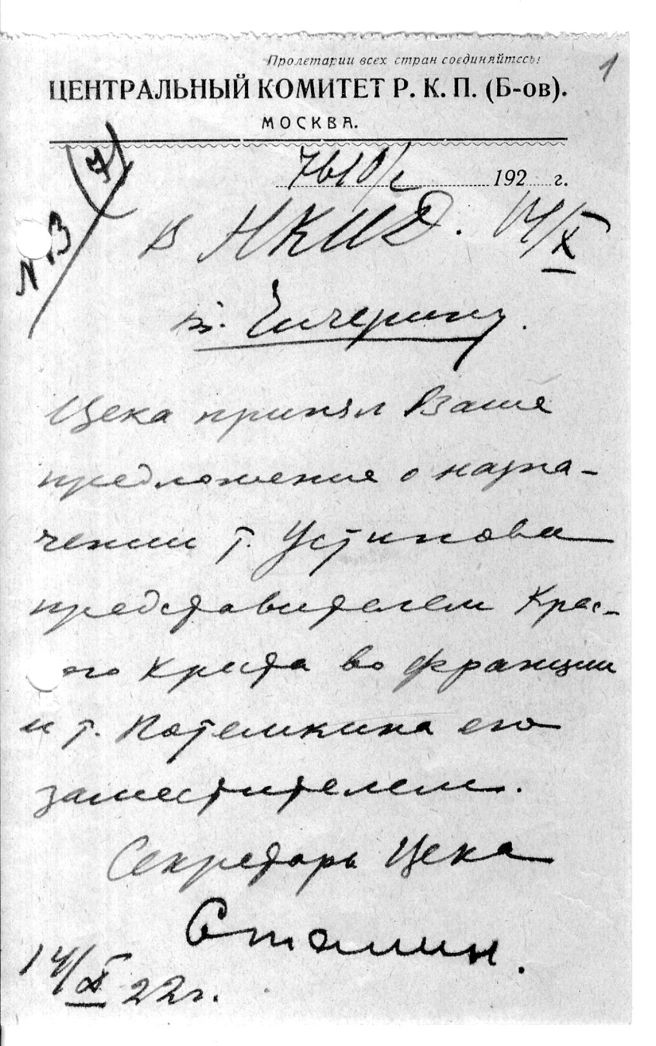 Пролетарии всех стран соединяйтесь!
1
ЦЕНТРАЛЬНЫЙ КОМИТЕТ Р. К. П. (Б-ов).
МОСКВА.
(7)
192 г.
№ 3
В НКИД. 14/X
т. Чичерину.
Цека принял Ваше
предложение о назна-
чении т. Устинова
представителем Крас-
ого Креста во Франции
и т. Потемкина его
заместителем.
Секретарь Цека
Сталин.
14/X 22г.